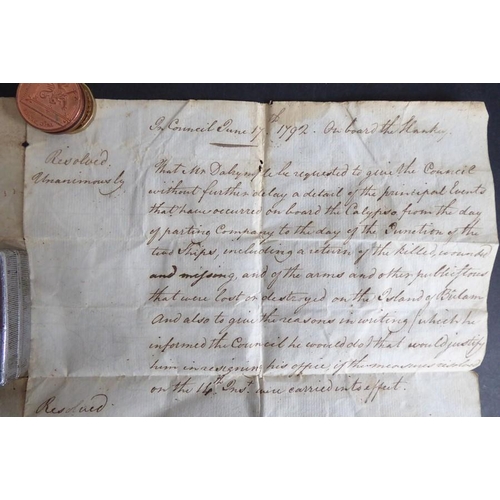 In Council June 17th 1792. On board the Hankey
Resolved
Unanimously
That Mr Dalrymple be requested to give the Council
without further delay a detail of the principal Events
that have occurred on board the Calypso from the day
of parting Company to the day of the Junction of the
two Ships, including a return of the killed, wounded
and missing, and of the arms and other public stores
that were lost or destroyed on the Island of Bulam
And also to give the reasons in writing (which he
informed the Council he would do) that would justify
him in resigning his office, if the measures
on the 14th Inst. were carried into effect.
Resolved